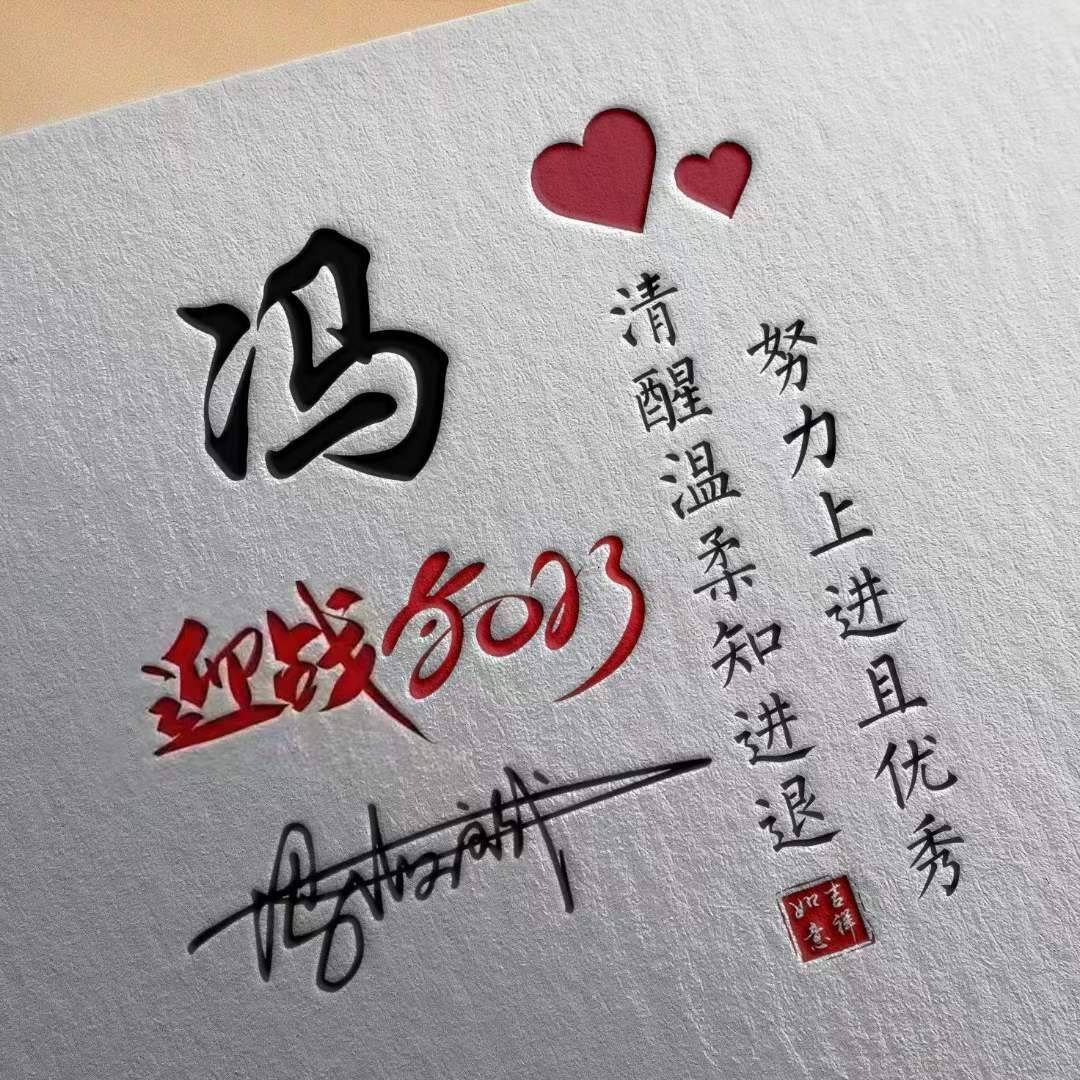 冯
迎战2023
努力上进且优秀
清醒温柔知进退
吉祥
如意